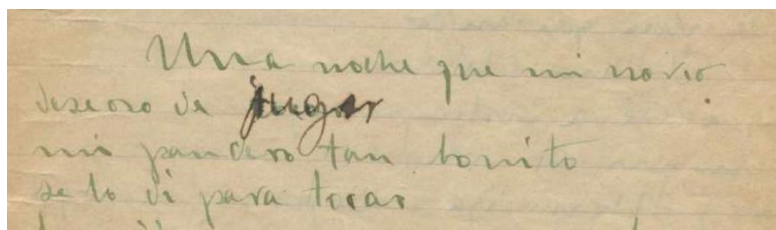 Una noche que mi novio
deseoso de jugar
mi pandero tan bonito
se lo di para tocar